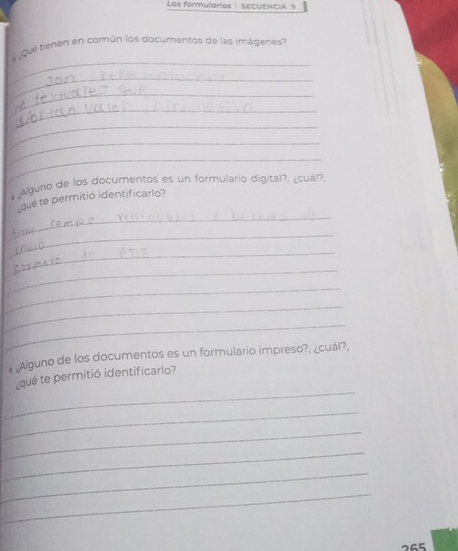 Los formularios | SECUENCIA 9
• ¿Qué tienen en común los documentos de las imágenes?
son
textuales que
aportan valor
• ¿Alguno de los documentos es un formulario digital?, ¿cuál?,
¿qué te permitió identificarlo?
tiene campo rellenables y botones de
envío
Formato de
• ¿Alguno de los documentos es un formulario impreso?, ¿cuál?,
¿qué te permitió identificarlo?
265